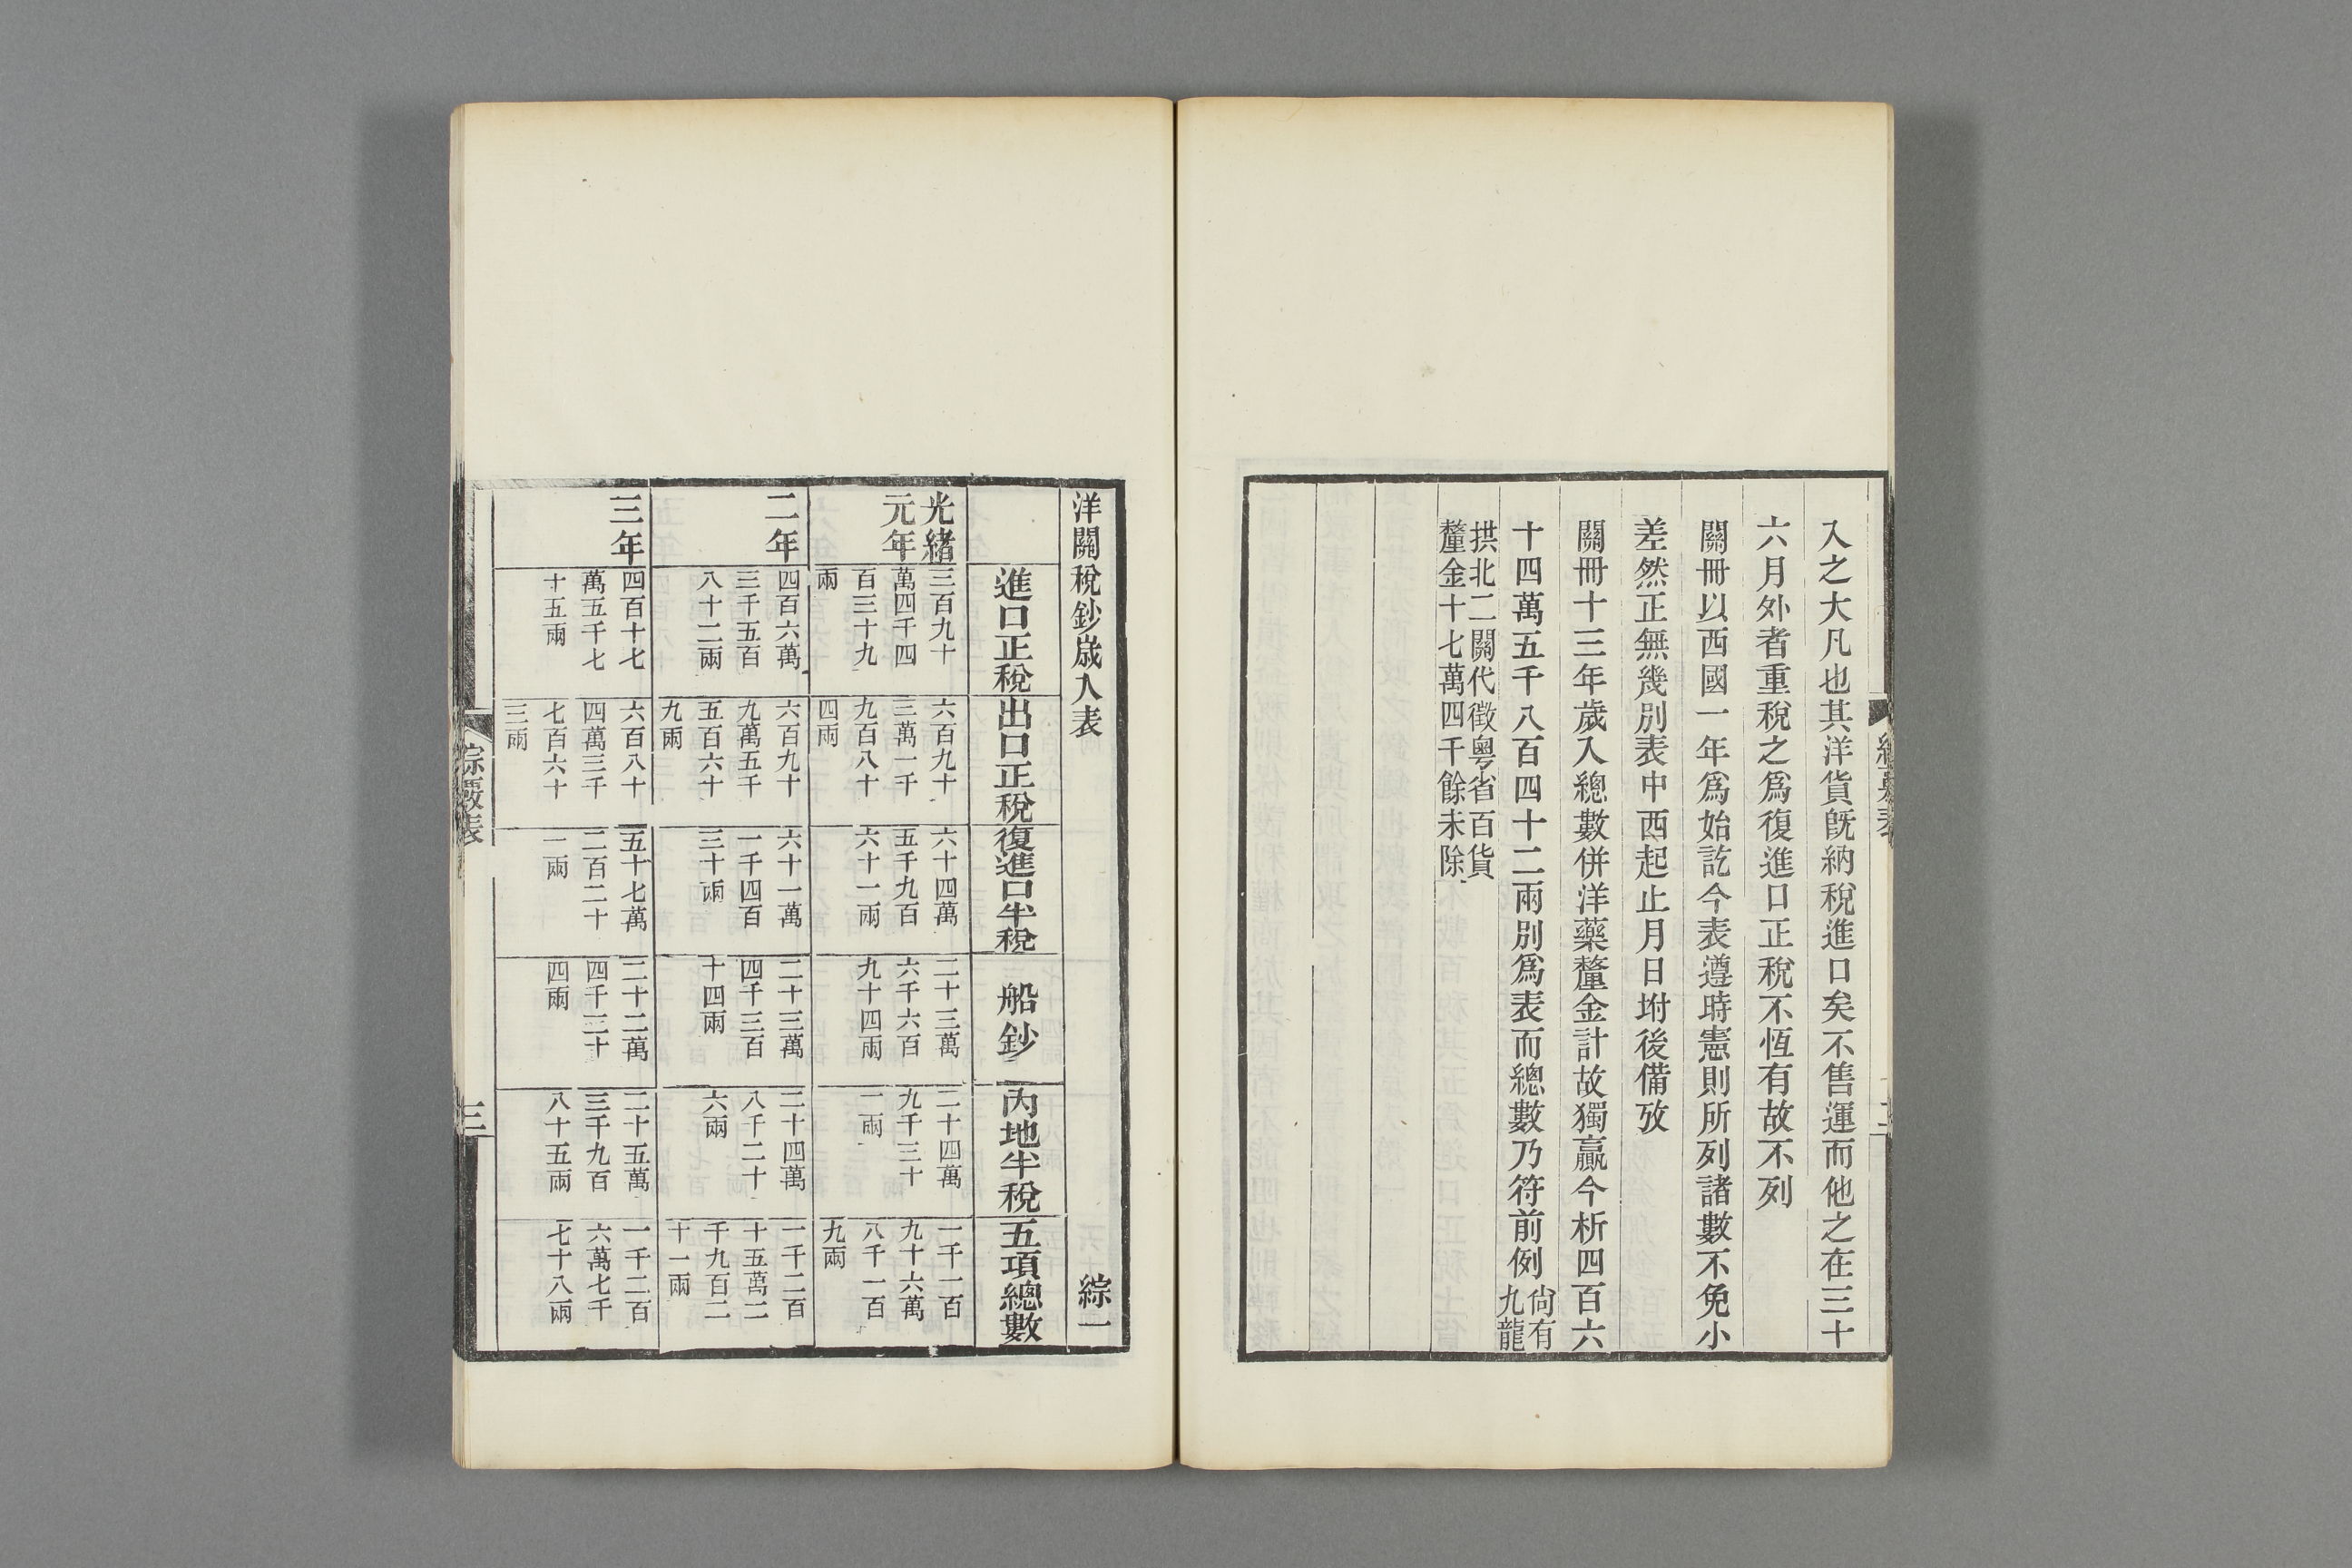 入之大凡也其洋貨旣納稅進口矣不售運而他之在三十
六月外者重稅之爲復進口正稅不恆有故不列
關冊以西國一年爲始訖今表遵時憲則所列諸數不免小
差然正無幾別表中西起止月日坿後備攷
關冊十三年歲入總數併洋藥釐金計故獨贏今析四百六
十四萬五千八百四十二兩別爲表而總數乃符前例尙有
九龍
拱北二關代徵粵省百貨
釐金十七萬四千餘未除
洋關稅鈔歲入表 綜一
進口正稅 出口正稅 復進口半稅 船鈔 內地半稅 五項總數
光緒
元年
三百九十
萬四千四
百三十九
兩
六百九十
三萬一千
九百八十
四兩
六十四萬
五千九百
六十一兩
二十三萬
六千六百
九十四兩
二十四萬
九千三十
一兩
一千一百
九十六萬
八千一百
九兩
二年
四百六萬
三千五百
八十二兩
六百九十
九萬五千
五百六十
九兩
六十一萬
一千四百
三十兩
二十三萬
四千三百
十四兩
二十四萬
八千二十
六兩
一千二百
十五萬二
千九百二
十一兩
三年
四百十七
萬五千七
十五兩
六百八十
四萬三千
七百六十
三兩
五十七萬
二百二十
一兩
二十二萬
四千三十
四兩
二十五萬
三千九百
八十五兩
一千二百
六萬七千
七十八兩
綜覈表
三